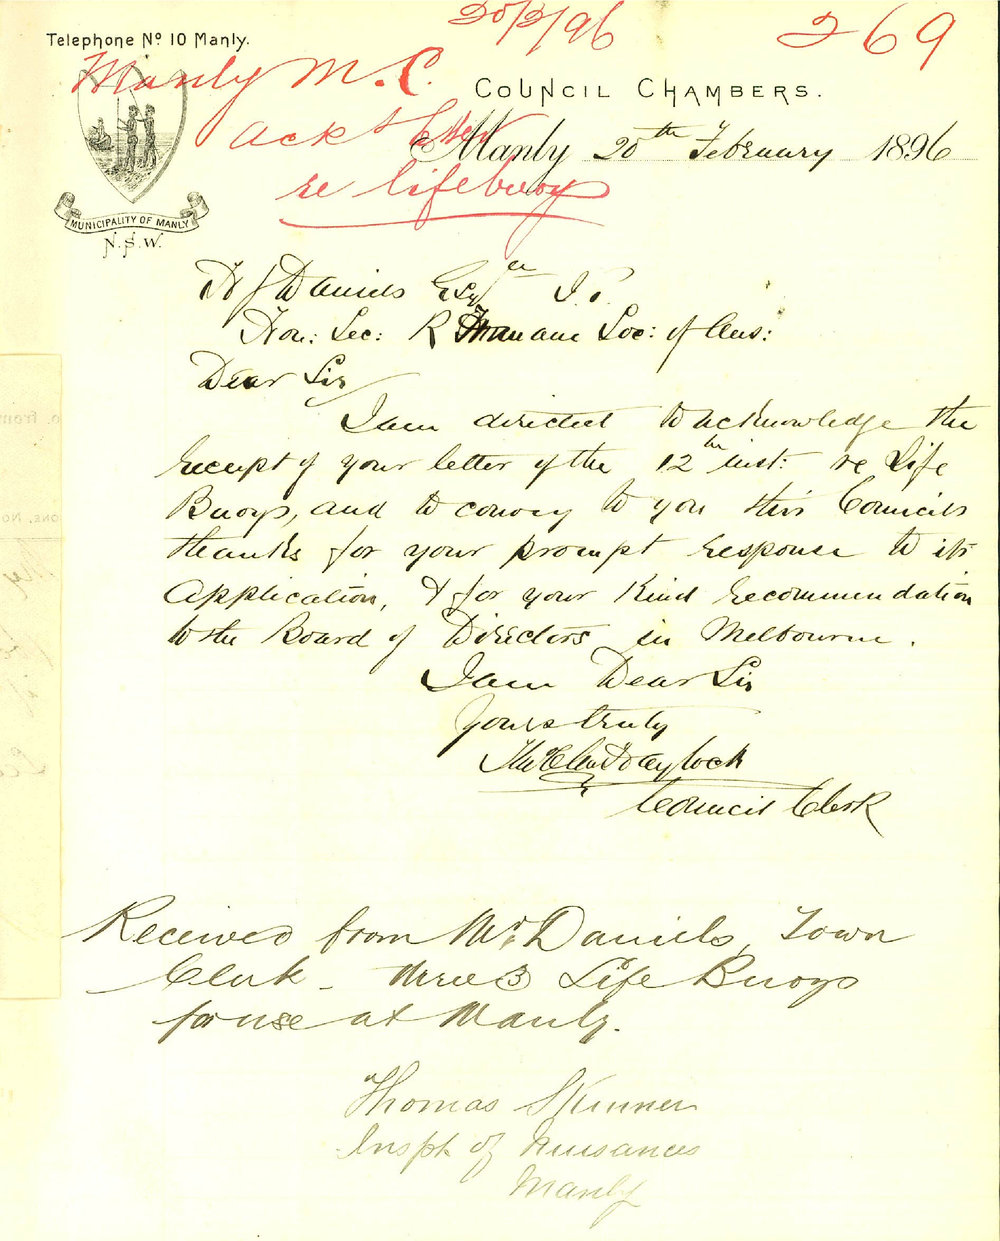 20/2/96
269
Telephone No 10 Manly.
Manly M.C.
COUNCIL CHAMBERS.
Ack
Manly 20th February 1896
re lifebuoy
MUNICIPALITY OF MANLY
N.S.W.
H J Daniels Esqre J.P.
Hon: Sec: R Humane Soc: of Aus:
Dear Sir
I am directed to acknowledge the
receipt of your letter of the 12th inst: re Life
Buoys, and to convey to you this Councils
thanks for your prompt response to its
Application, & for your kind recommendation
to the Board of Directors in Melbourne.
I am Dear Sir
Yours truly
Council Clerk
Received from Mr Daniels, Town
Clerk - three 3 Life Buoys
for use at Manly.
Thomas Skinner
Inspt of Nuisances
Manly